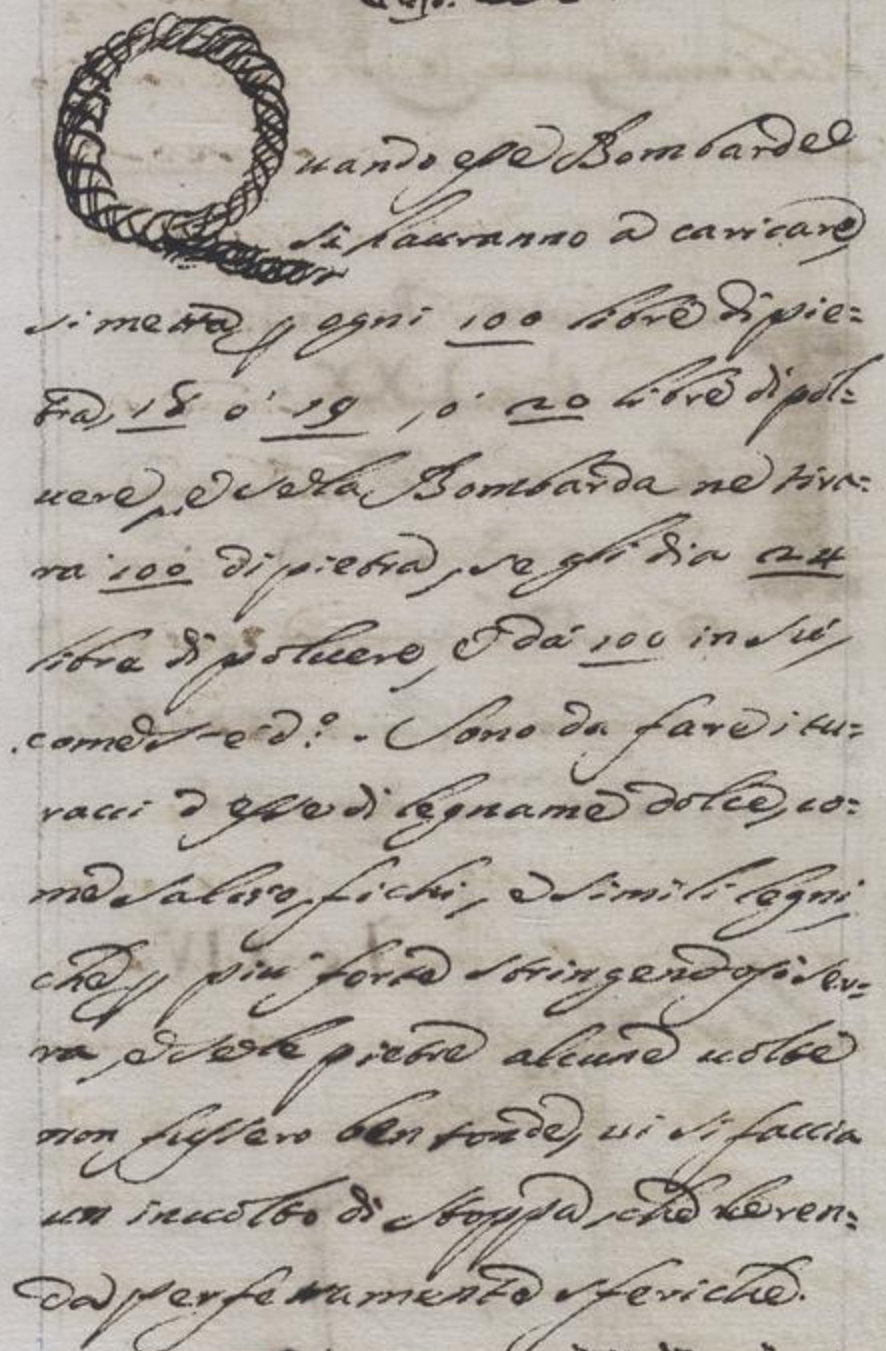 Quando esse Bombarde
si hauranno à caricare,
si metta p ogni 100 libre di pie=
tra, 18 ó 19, ó 20 libre di pol=
uere, e se la Bombarda ne tira=
rà 100 di pietra, se gli dia 24
libre di poluere, e da 100 in sù,
come s'è d.º. Sono da fare i tu=
racci d esse di legname dolce, co=
me salico, fichi, e simili legni,
che p più forte stringendosi ser=
ra, e se le pietre alcune uolte
non fussero ben tonde, ui si faccia
un inuolto di stoppa, che le ren=
da perfettamente sferiche.